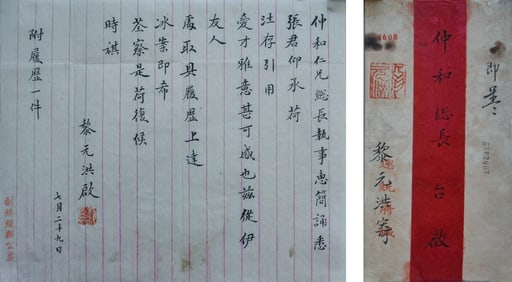 仲和仁兄総長執事惠簡誦悉
張君仰承荷
注存引用
愛才雅意甚可感也茲從伊
友人
處取具履歷上達
冰案即希
荃察是荷復候
時祺
黎元洪啟
七月二十九日
附履歷一件
副總統府公用
即呈
仲和総長 台啟
黎元洪寄